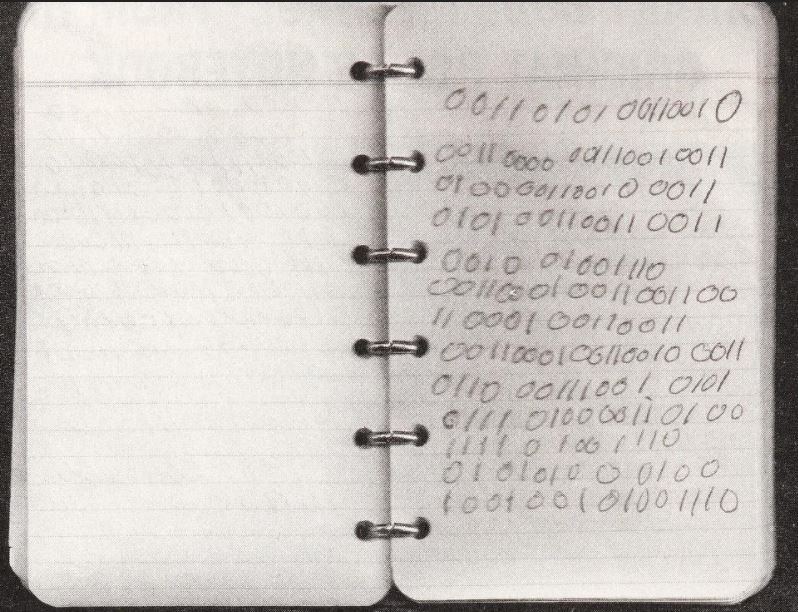 0011 0101 00110010
0011 0000 00111001 0011
0100 00110010 0011
0101 00110011 0011
0010 01001110
00110001 0011001100
11 0001 00110011
00110001 00110010 0011
0110 00111001 0101
0111 01000011 0100
1111 0 100 1110
01010100 0100
1001001 01001110